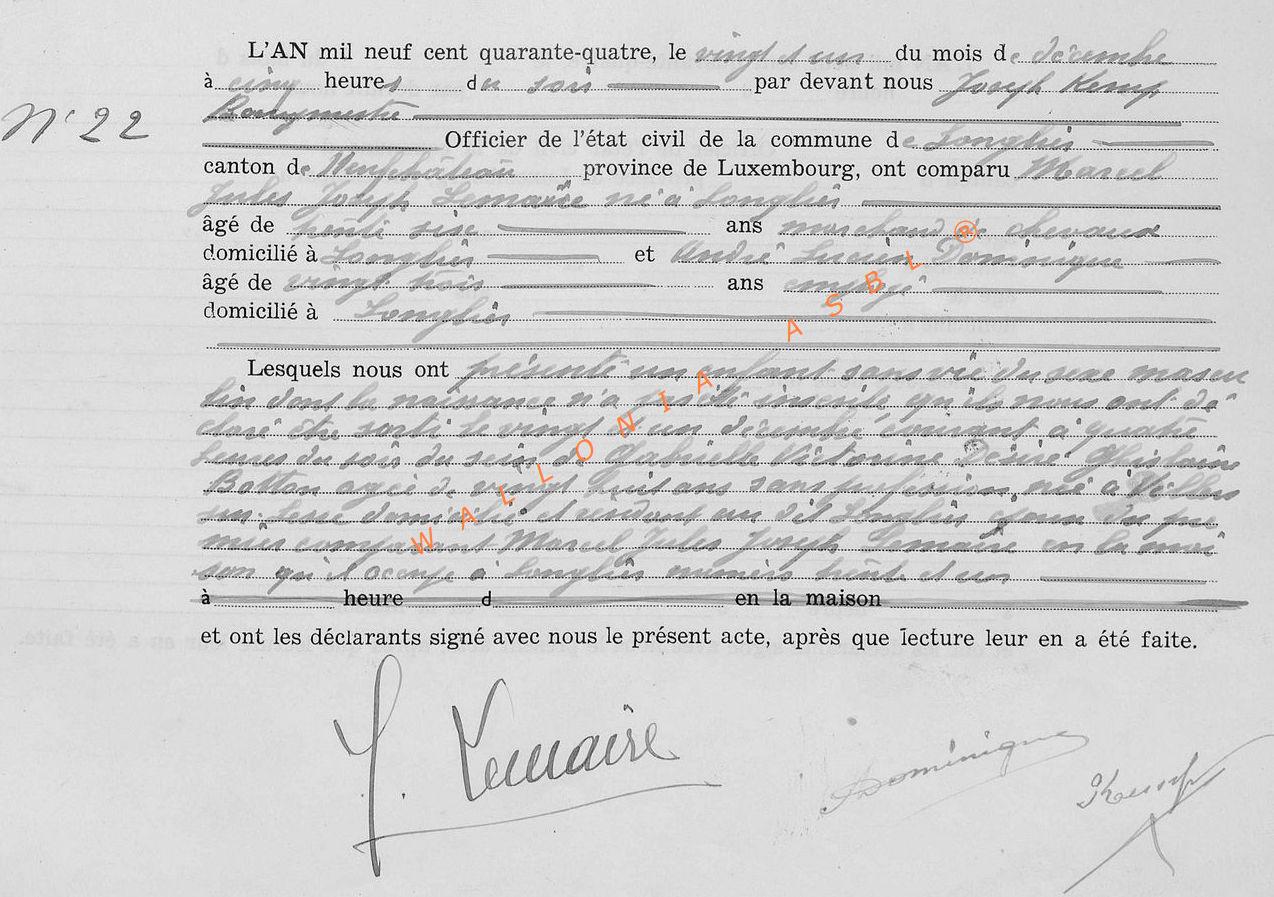 L'AN mil neuf cent quarante-quatre, le vingt et un du mois de décembre
à cinq heures du soir par devant nous Joseph Kemp
N° 22
Bourgmestre
Officier de l'état civil de la commune de Longlier
canton de Neufchâteau province de Luxembourg, ont comparu Marcel
Jules Joseph Lemaire né à Longlier
âgé de trente six ans marchand de chevaux
domicilié à Longlier et André Lucien Dominique
âgé de vingt trois ans employé
domicilié à Longlier
Lesquels nous ont présenté un enfant sans vie du sexe mascu
lin dont la naissance n'a pas été inscrite qu'ils nous ont dé
claré être sorti le vingt et un décembre courant à quatre
heures du soir du sein de Gabrielle Victorine Désiré Ghislaine
Botton agée de vingt huit ans sans profession, née à Villers
sur-Lesse domicilié et résidant au dit Longlier épouse du pre
mier comparant Marcel Jules Joseph Lemaire en la mai
son qu'il occupe à Longlier numéro trente et un
à heure d en la maison
et ont les déclarants signé avec nous le présent acte, après que lecture leur en a été faite.
J. Lemaire
Dominique
WALLONIA ASBL ®